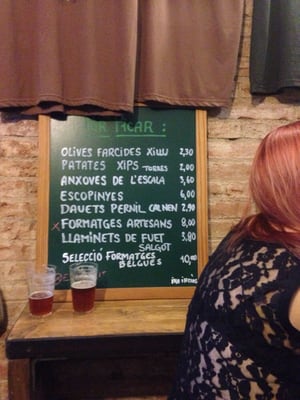 PICAR :
OLIVES FARCIDES XILLU 2,30
PATATES XIPS TORRES 2,00
ANXOVES DE L'ESCALA 3,60
ESCOPINYES 6,00
DAUETS PERNIL CAL NEN 2,90
X FORMATGES ARTESANS 8,00
LLAMINETS DE FUET 3,80
SALGOT
SELECCIÓ FORMATGES 10,00
BELGUES
IVA INCLÒS